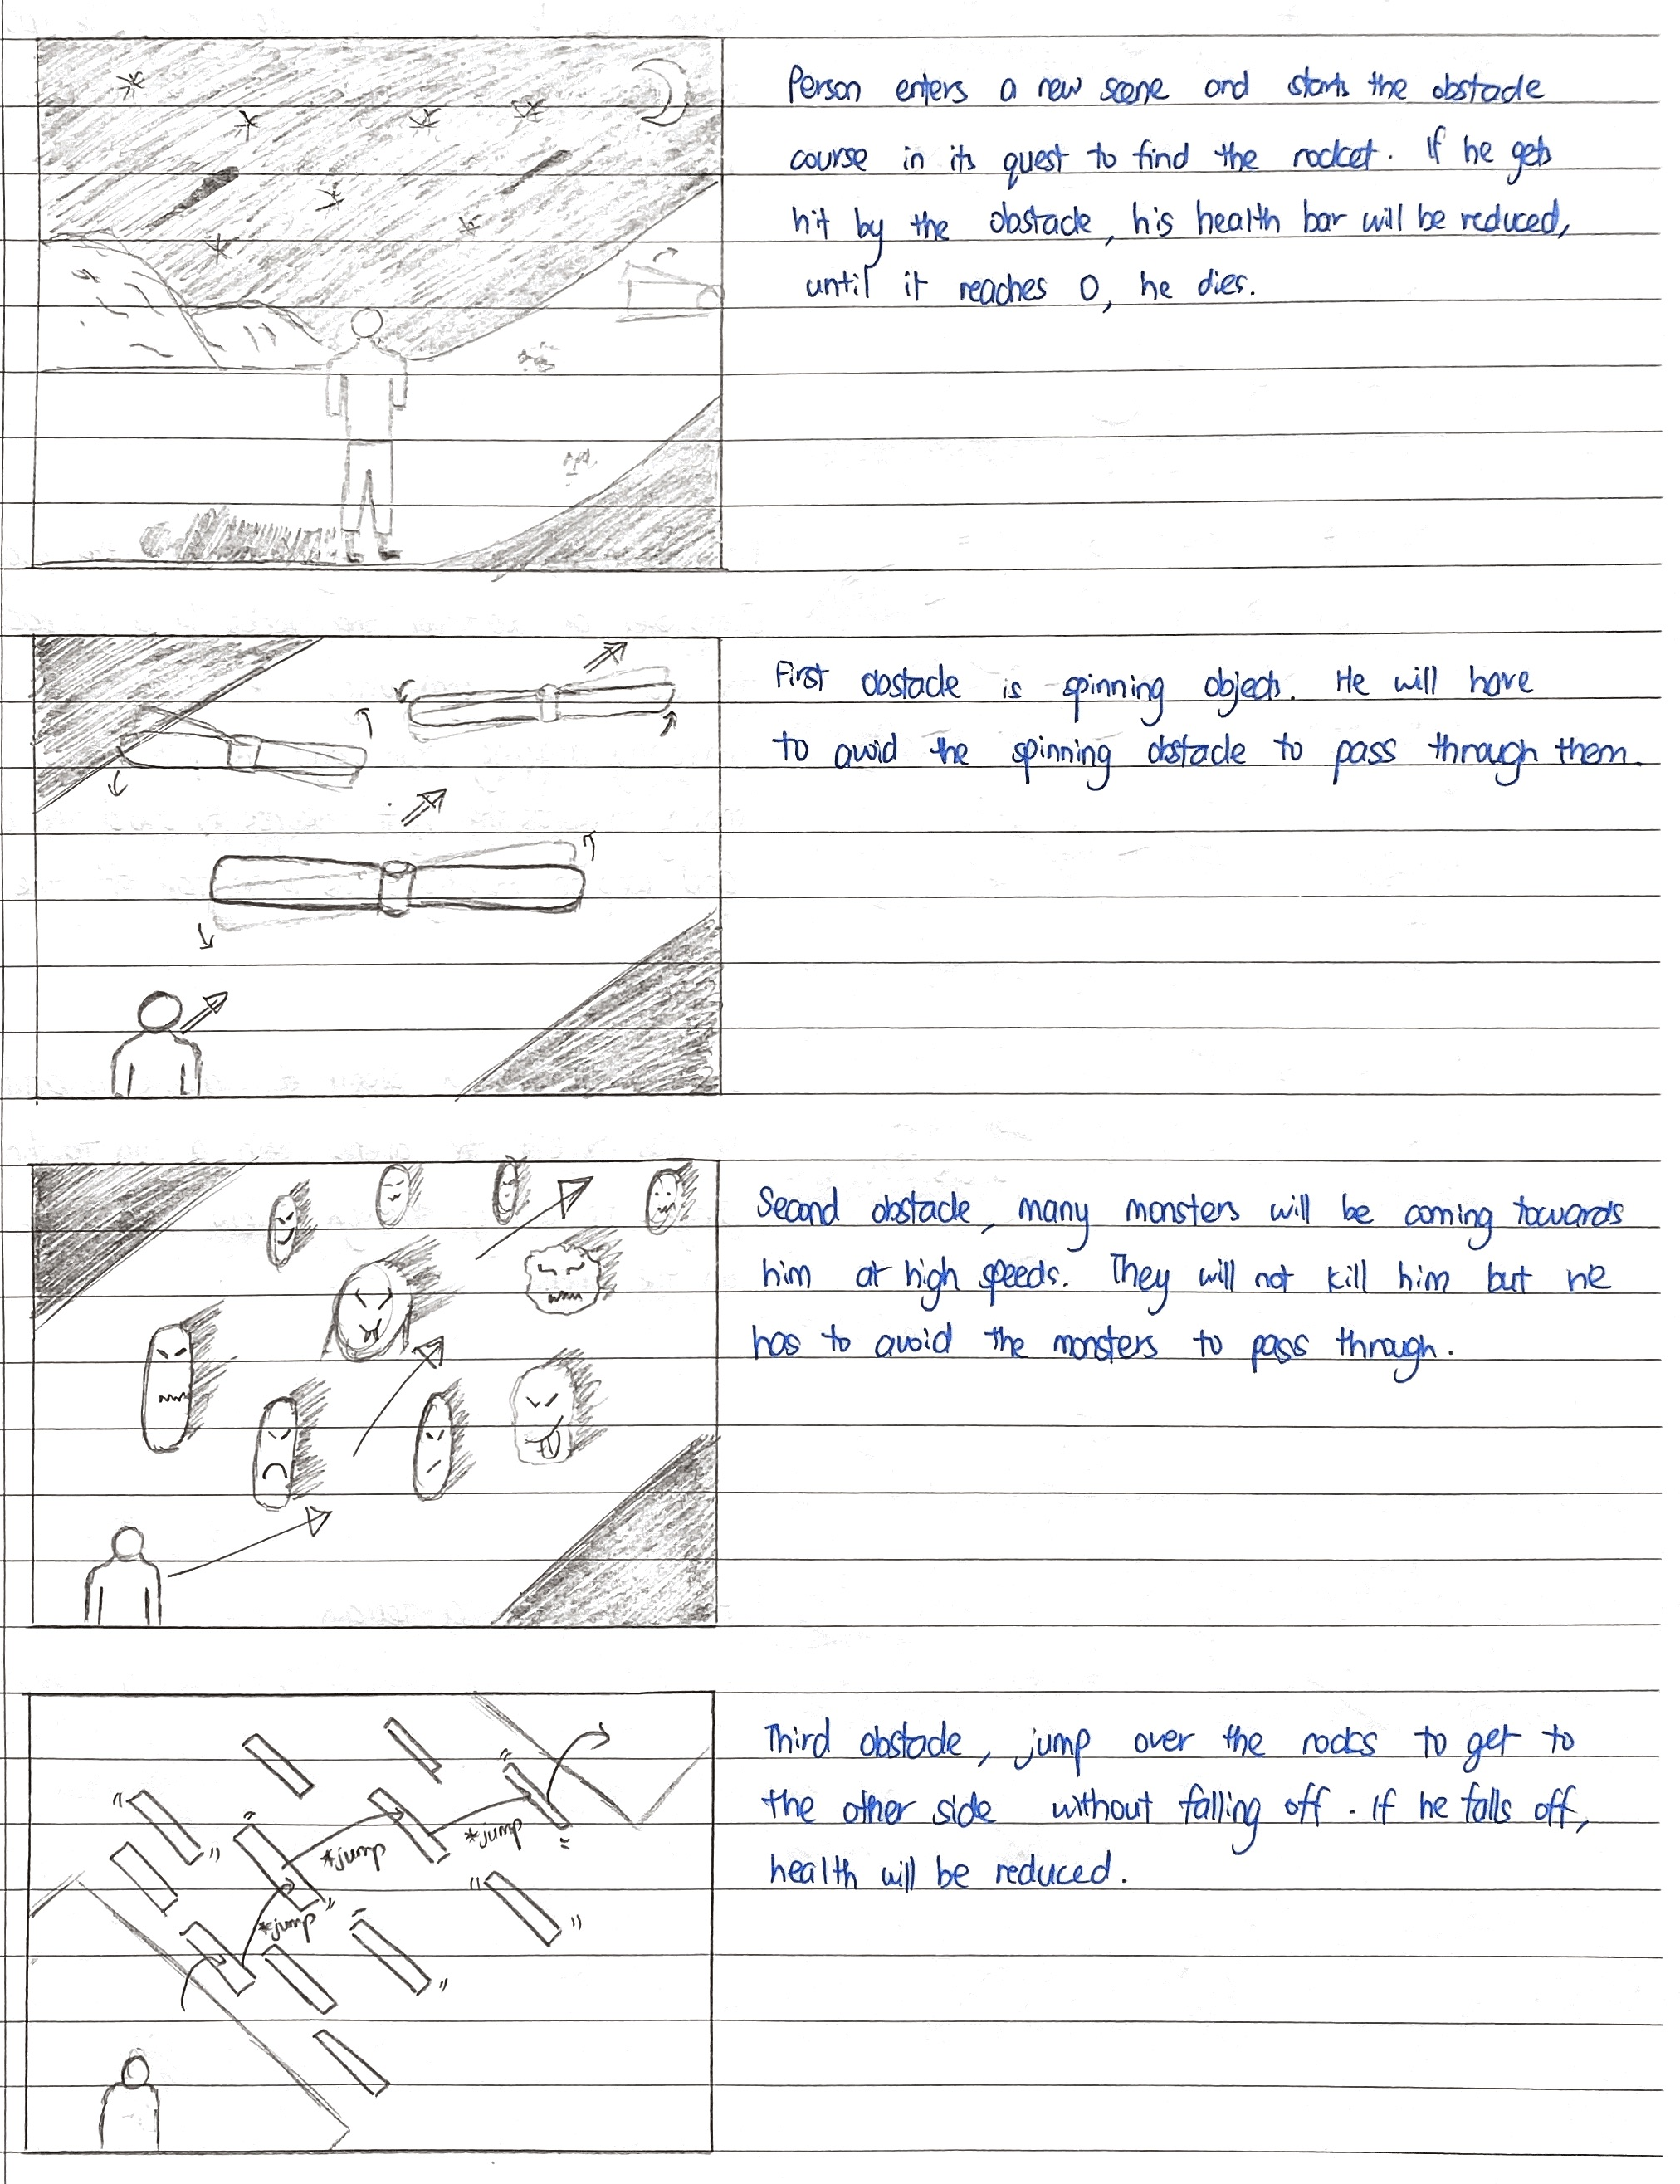 Person enters a new scene and starts the obstacle
course in its quest to find the rocket. If he gets
hit by the obstacle, his health bar will be reduced,
until it reaches 0, he dies.
First obstacle is spinning objects. He will have
to avoid the spinning obstacle to pass through them.
Second obstacle, many monsters will be coming towards
him at high speeds. They will not kill him but he
has to avoid the monsters to pass through.
Third obstacle, jump over the rocks to get to
the other side without falling off. If he falls off,
health will be reduced.
*jump
*jump
*jump